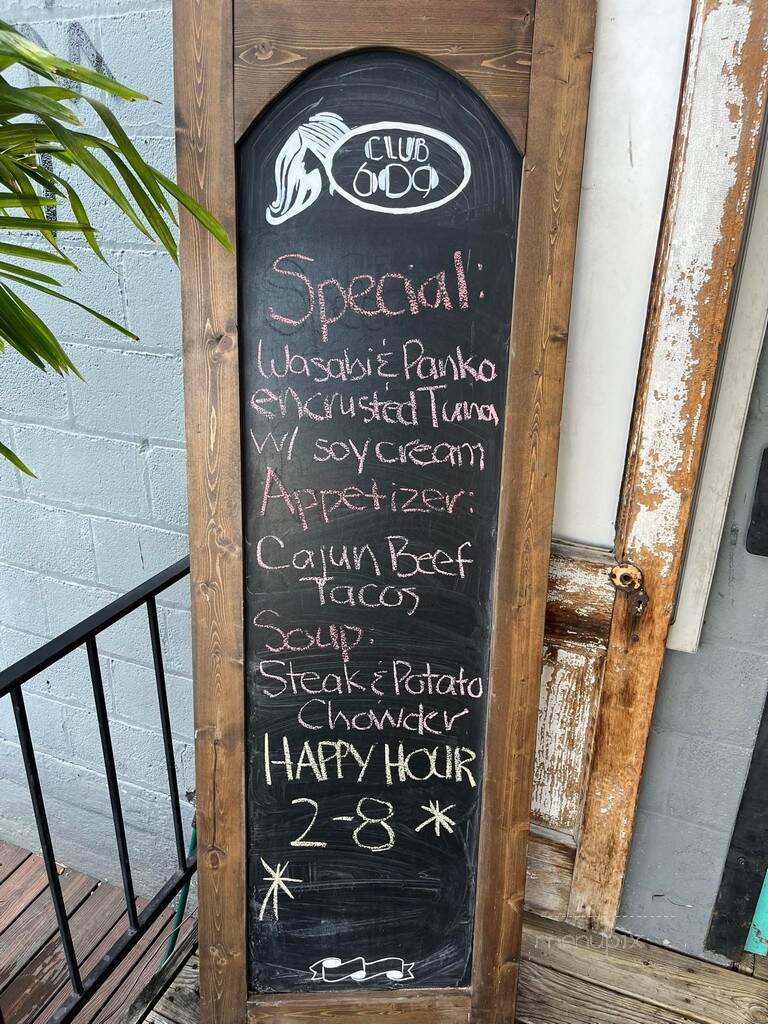 CLUB
609
Special:
Wasabi & Panko
encrusted Tuna
w/ soy cream
Appetizer:
Cajun Beef
Tacos
Soup:
Steak & Potato
Chowder
HAPPY HOUR
2-8 *
*
menupix